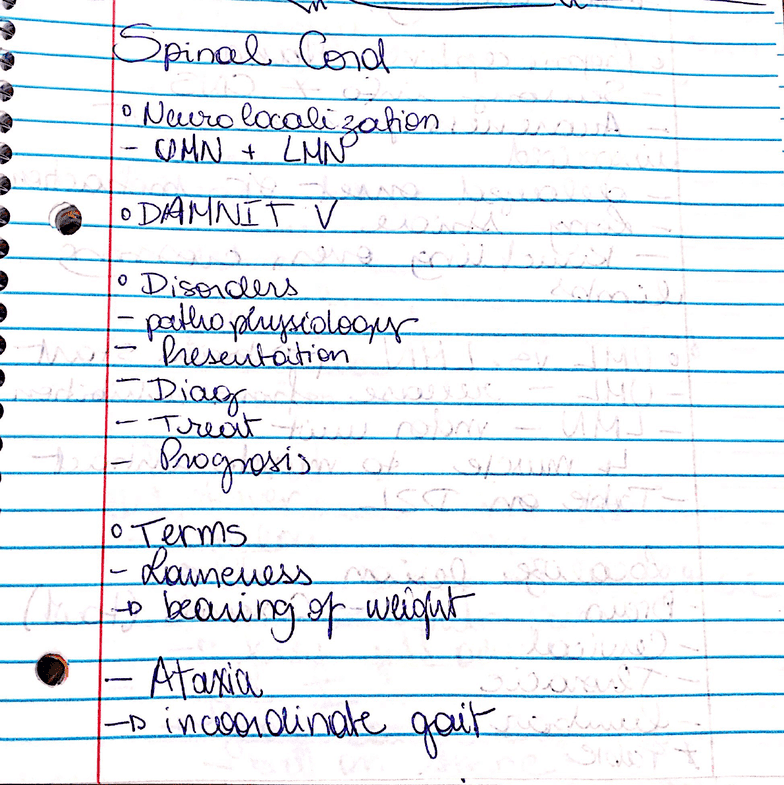 Spinal Cord
o Neurolocalization
- UMN + LMN
o DAMNIT V
o Disorders
- pathophysiology
- Presentaition
- Diag
- Treat
- Prognosis
o Terms
- Lameness
→ bearing of weight
- Ataxia
→ incoordinate gait